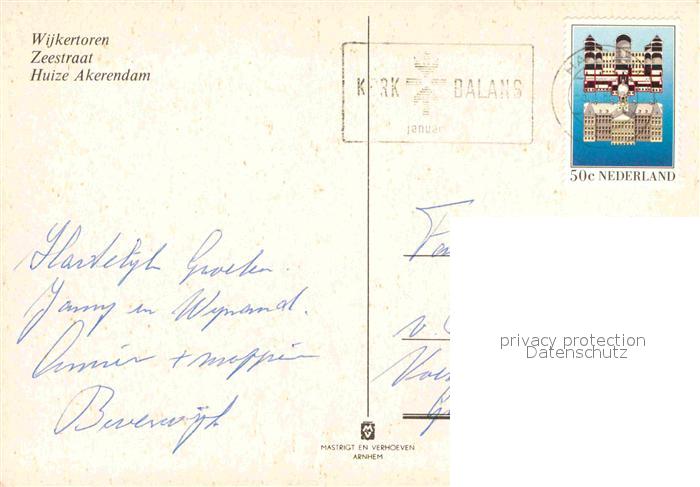 Wijkertoren
Zeestraat
Huize Akerendam
KERK BALANS
januari
50c NEDERLAND
Hartelijk Groeten.
Janny en Wynand.
Beverwijk
v.
privacy protection
Datenschutz
MASTRIGT EN VERHOEVEN
ARNHEM